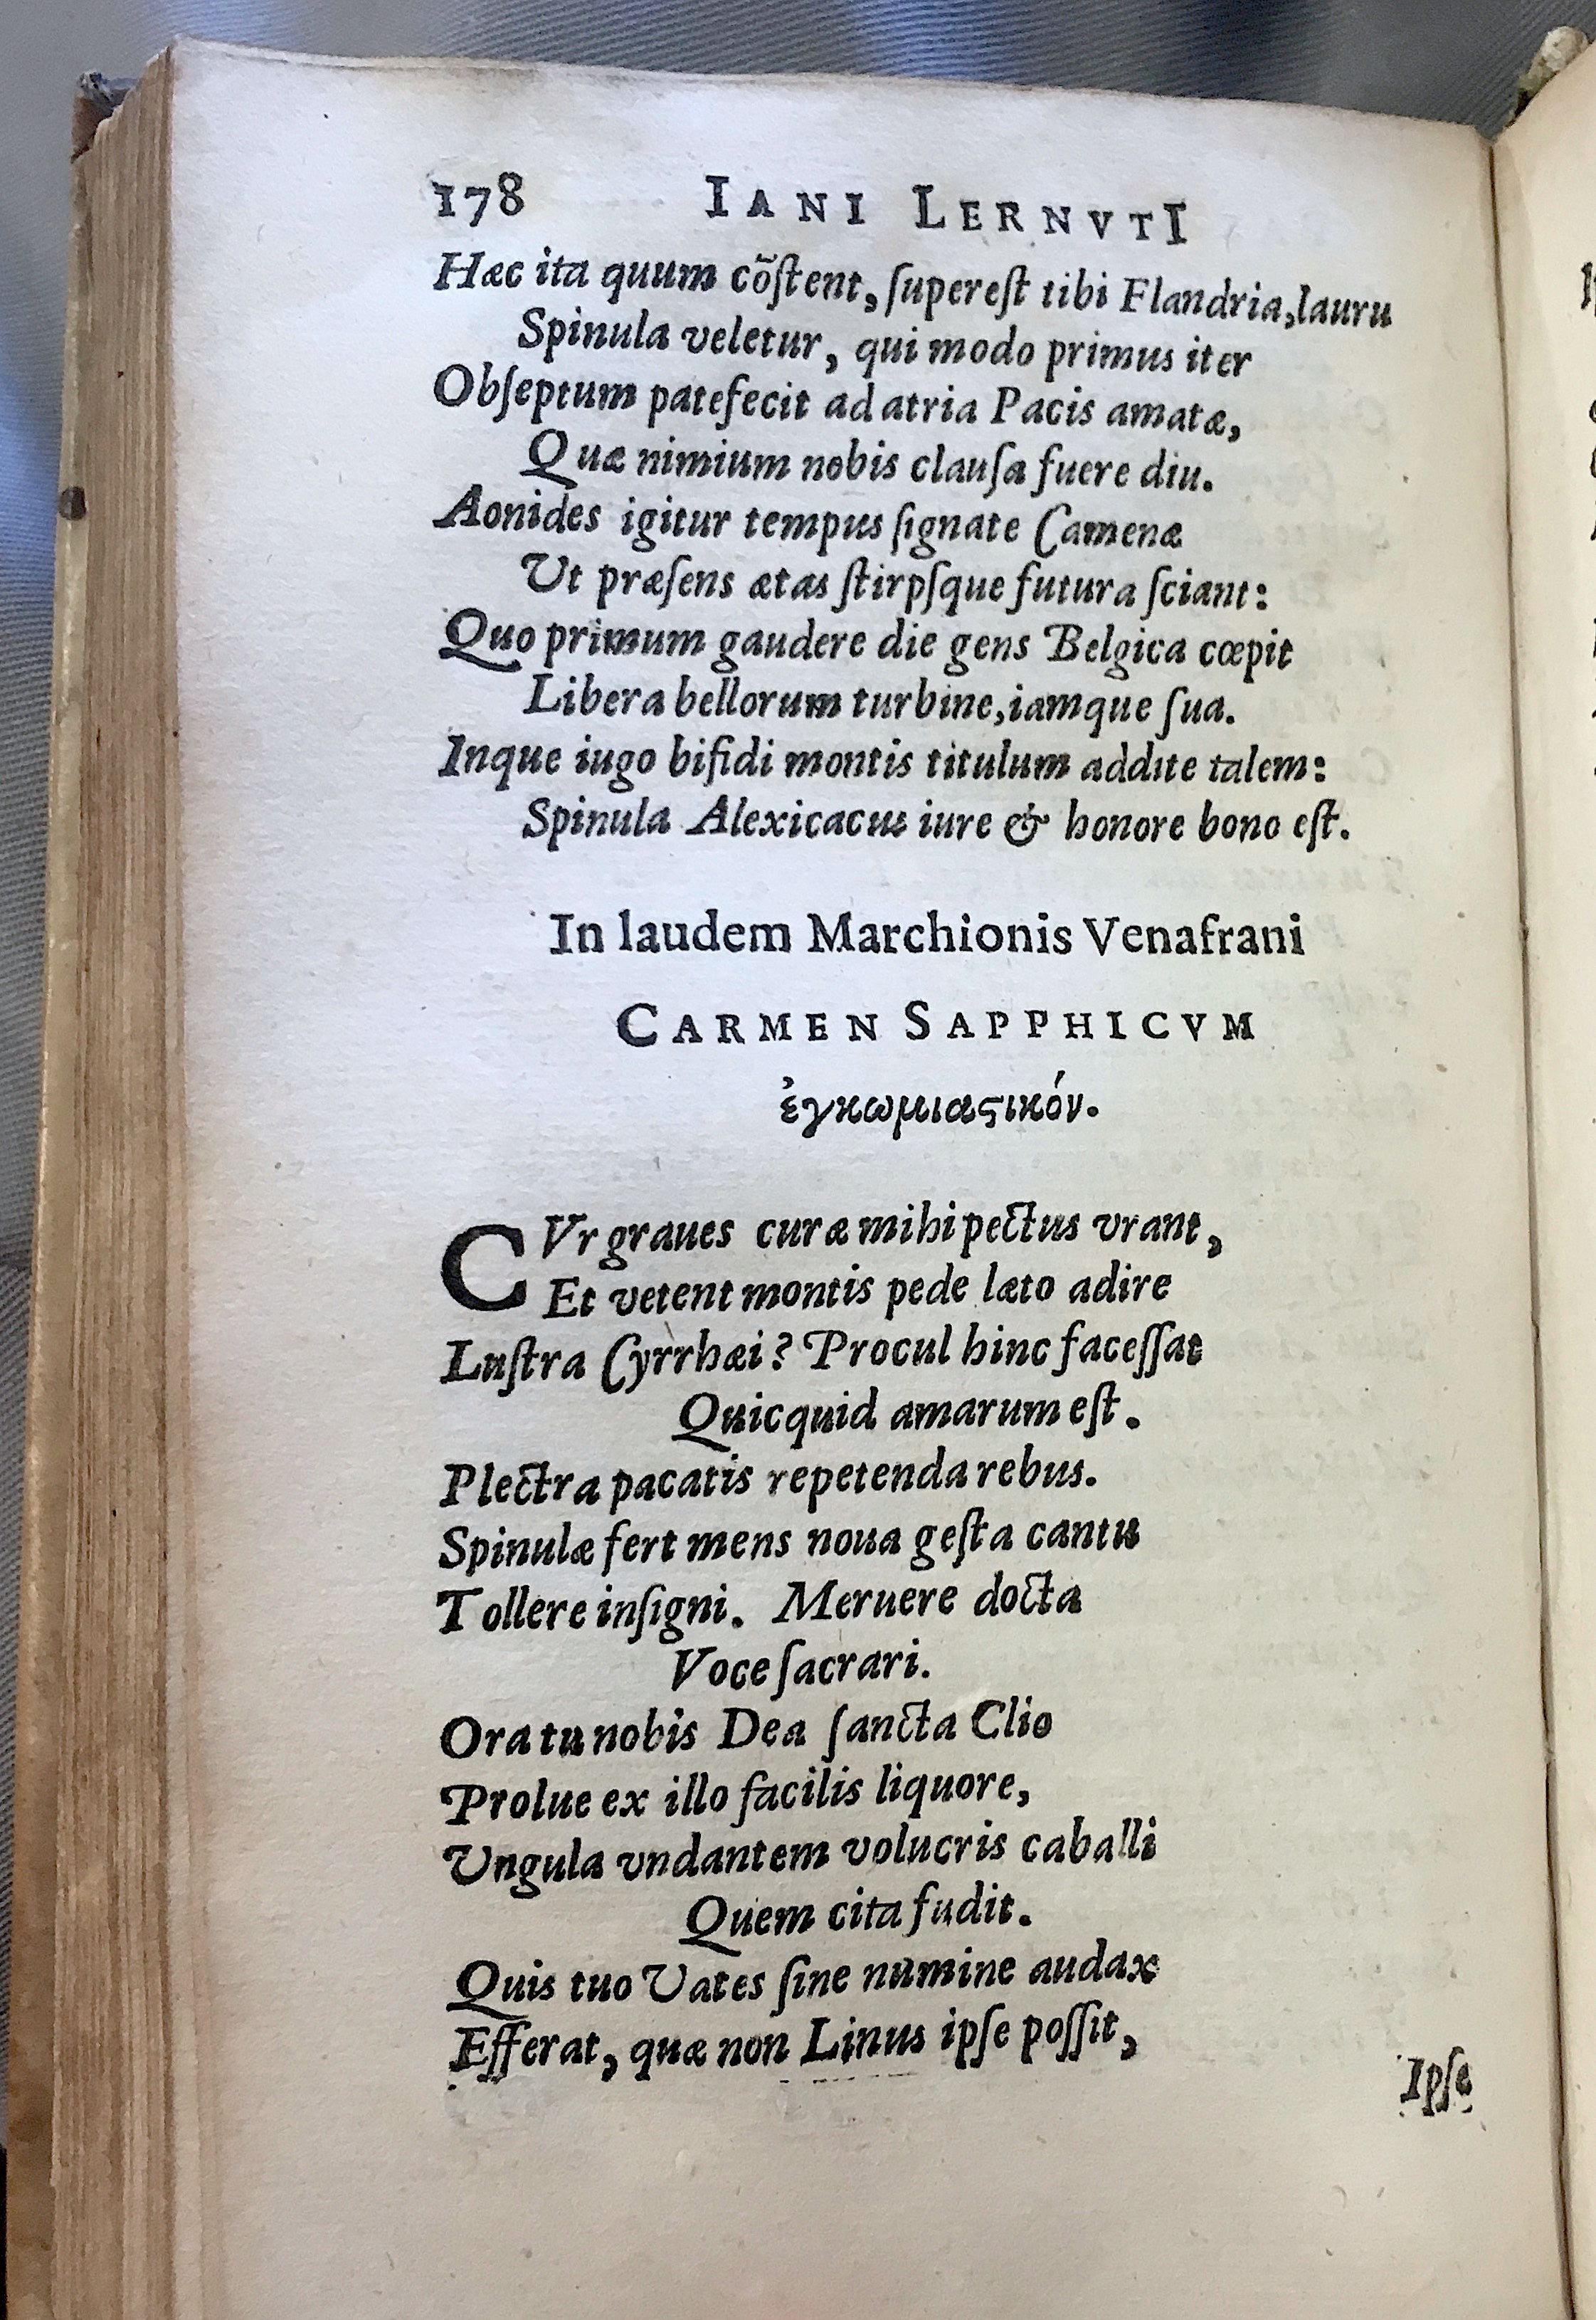 178 IANI LERNVTI
Hæc ita quum cõſtent, ſupereſt tibi Flandria, lauru
Spinula veletur, qui modo primus iter
Obſeptum patefecit ad atria Pacis amatæ,
Quæ nimium nobis clauſa fuere diu.
Aonides igitur tempus ſignate Camenæ
Ut præſens ætas ſtirpſque futura ſciant:
Quo primum gaudere die gens Belgica cœpit
Libera bellorum turbine, iamque ſua.
Inque iugo bifidi montis titulum addite talem:
Spinula Alexicacus iure & honore bono eſt.
In laudem Marchionis Venafrani
CARMEN SAPPHICVM
ἐγκωμιαςικόν.
CVr graues curæ mihi pectus vrant,
Et vetent montis pede læto adire
Luſtra Cyrrhæi? Procul hinc faceſſat
Quicquid amarum eſt.
Plectra pacatis repetenda rebus.
Spinulæ fert mens noua geſta cantu
Tollere inſigni. Meruere docta
Voce ſacrari.
Ora tu nobis Dea ſancta Clio
Prolue ex illo facilis liquore,
Ungula vndantem volucris caballi
Quem cita fudit.
Quis tuo Uates ſine numine audax
Efferat, quæ non Linus ipſe poſſit,
Ipſe